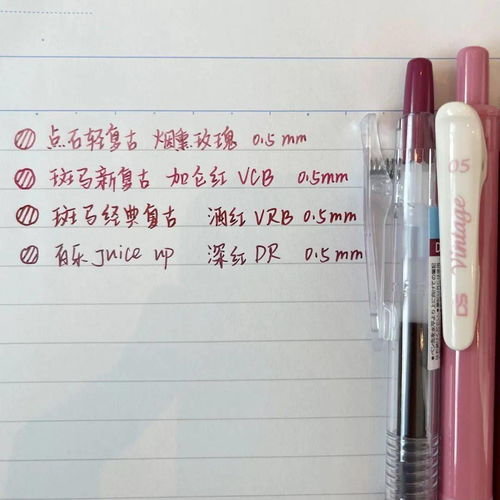 点石轻复古 烟熏玫瑰 0.5mm
斑马新复古 加仑红 VCB 0.5mm
斑马经典复古 酒红 VRB 0.5mm
百乐 Juice up 深红 DR 0.5mm
05
Vintage
DS